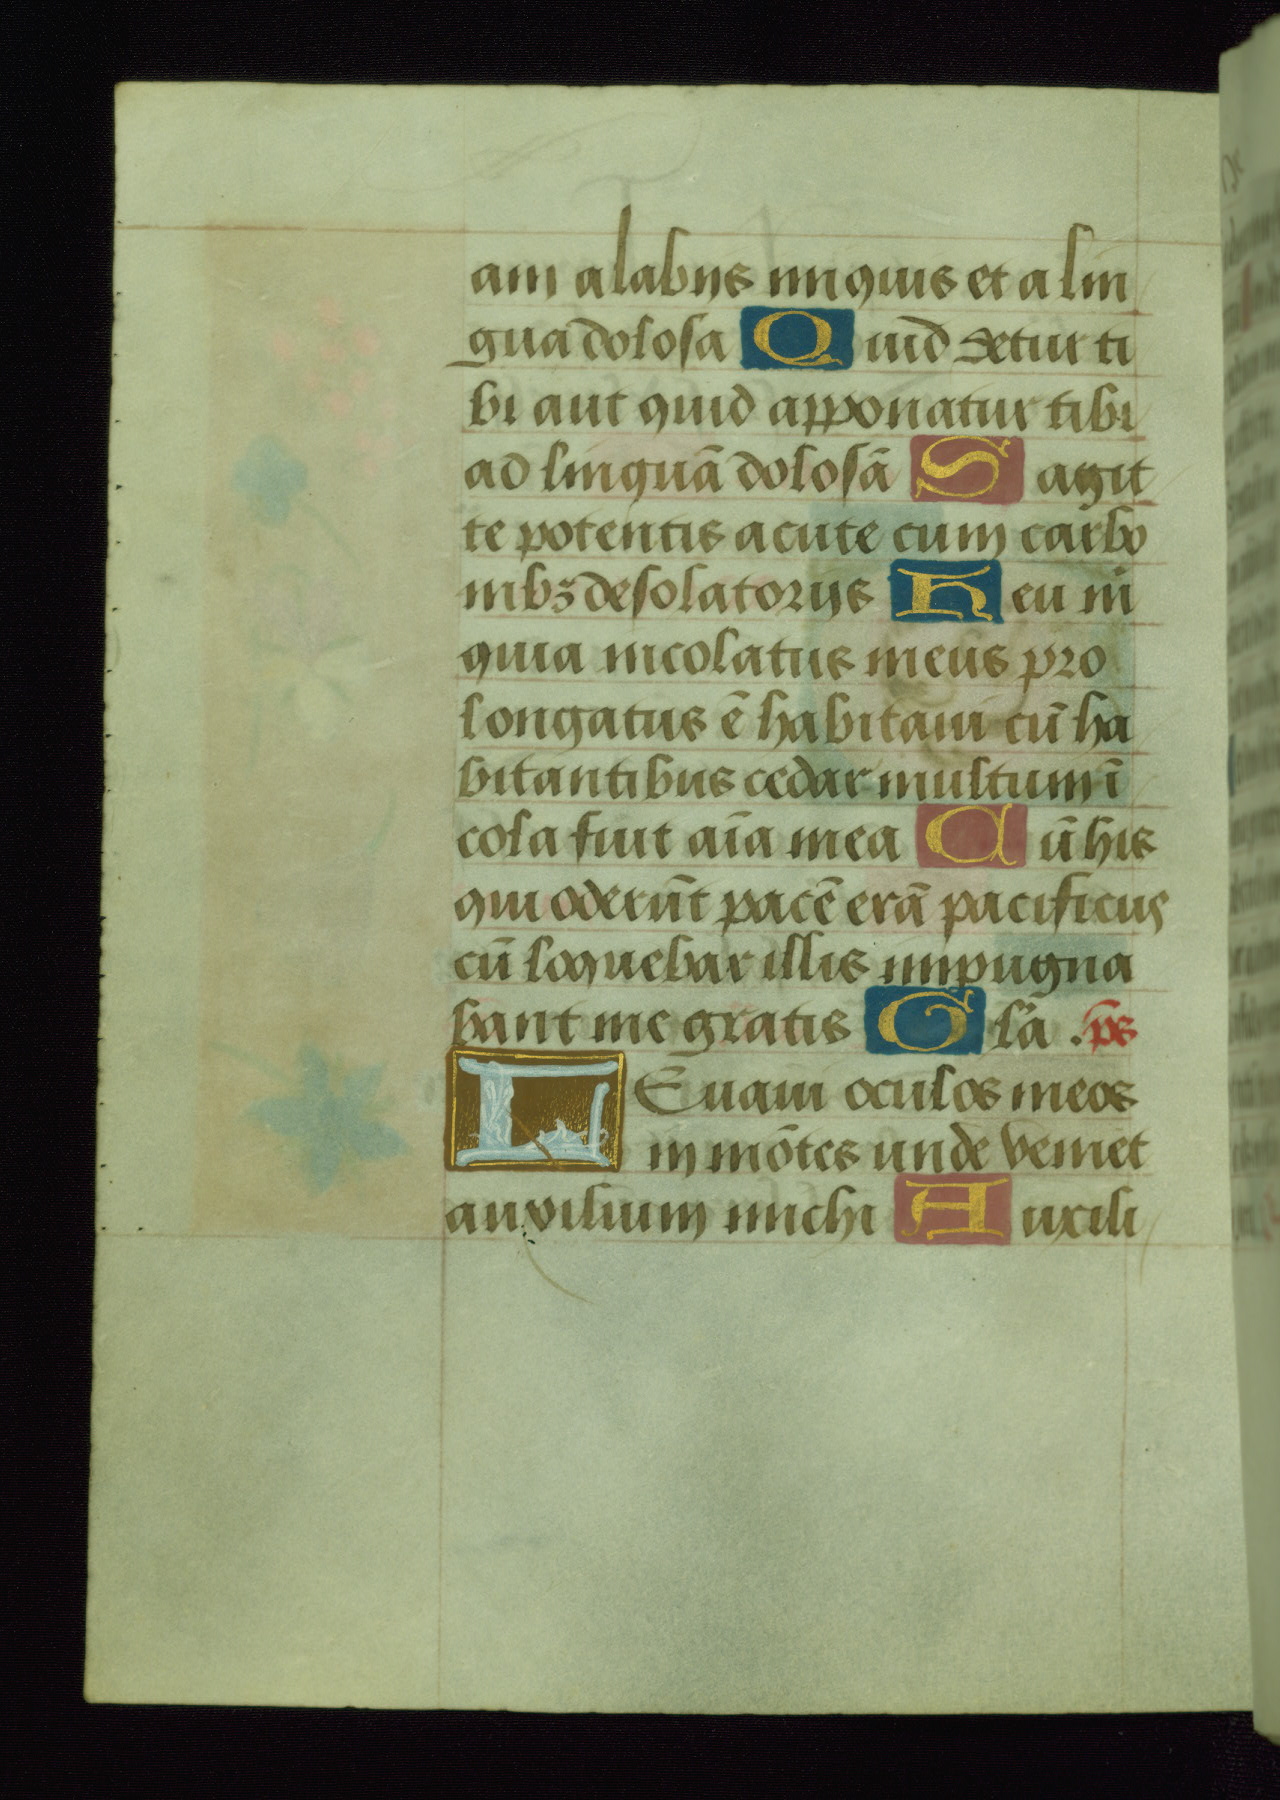 am a labijs iniquis et a lin
gua dolosa Quid detur ti
bi aut quid apponatur tibi
ad linguā dolosā Sagit
te potentis acute cum carbo
nibꝫ desolatorijs Heu m
quia incolatus meus pro
longatus ē habitaui cū ha
bitantibus cedar multum ī
cola fuit aīa mea Cū his
qui oderūt pacē erā pacificus
cū loquebar illis impugna
bant me gratis Glā . ps̄
LEuaui oculos meos
in mōtes unde veniet
auxilium michi Auxili